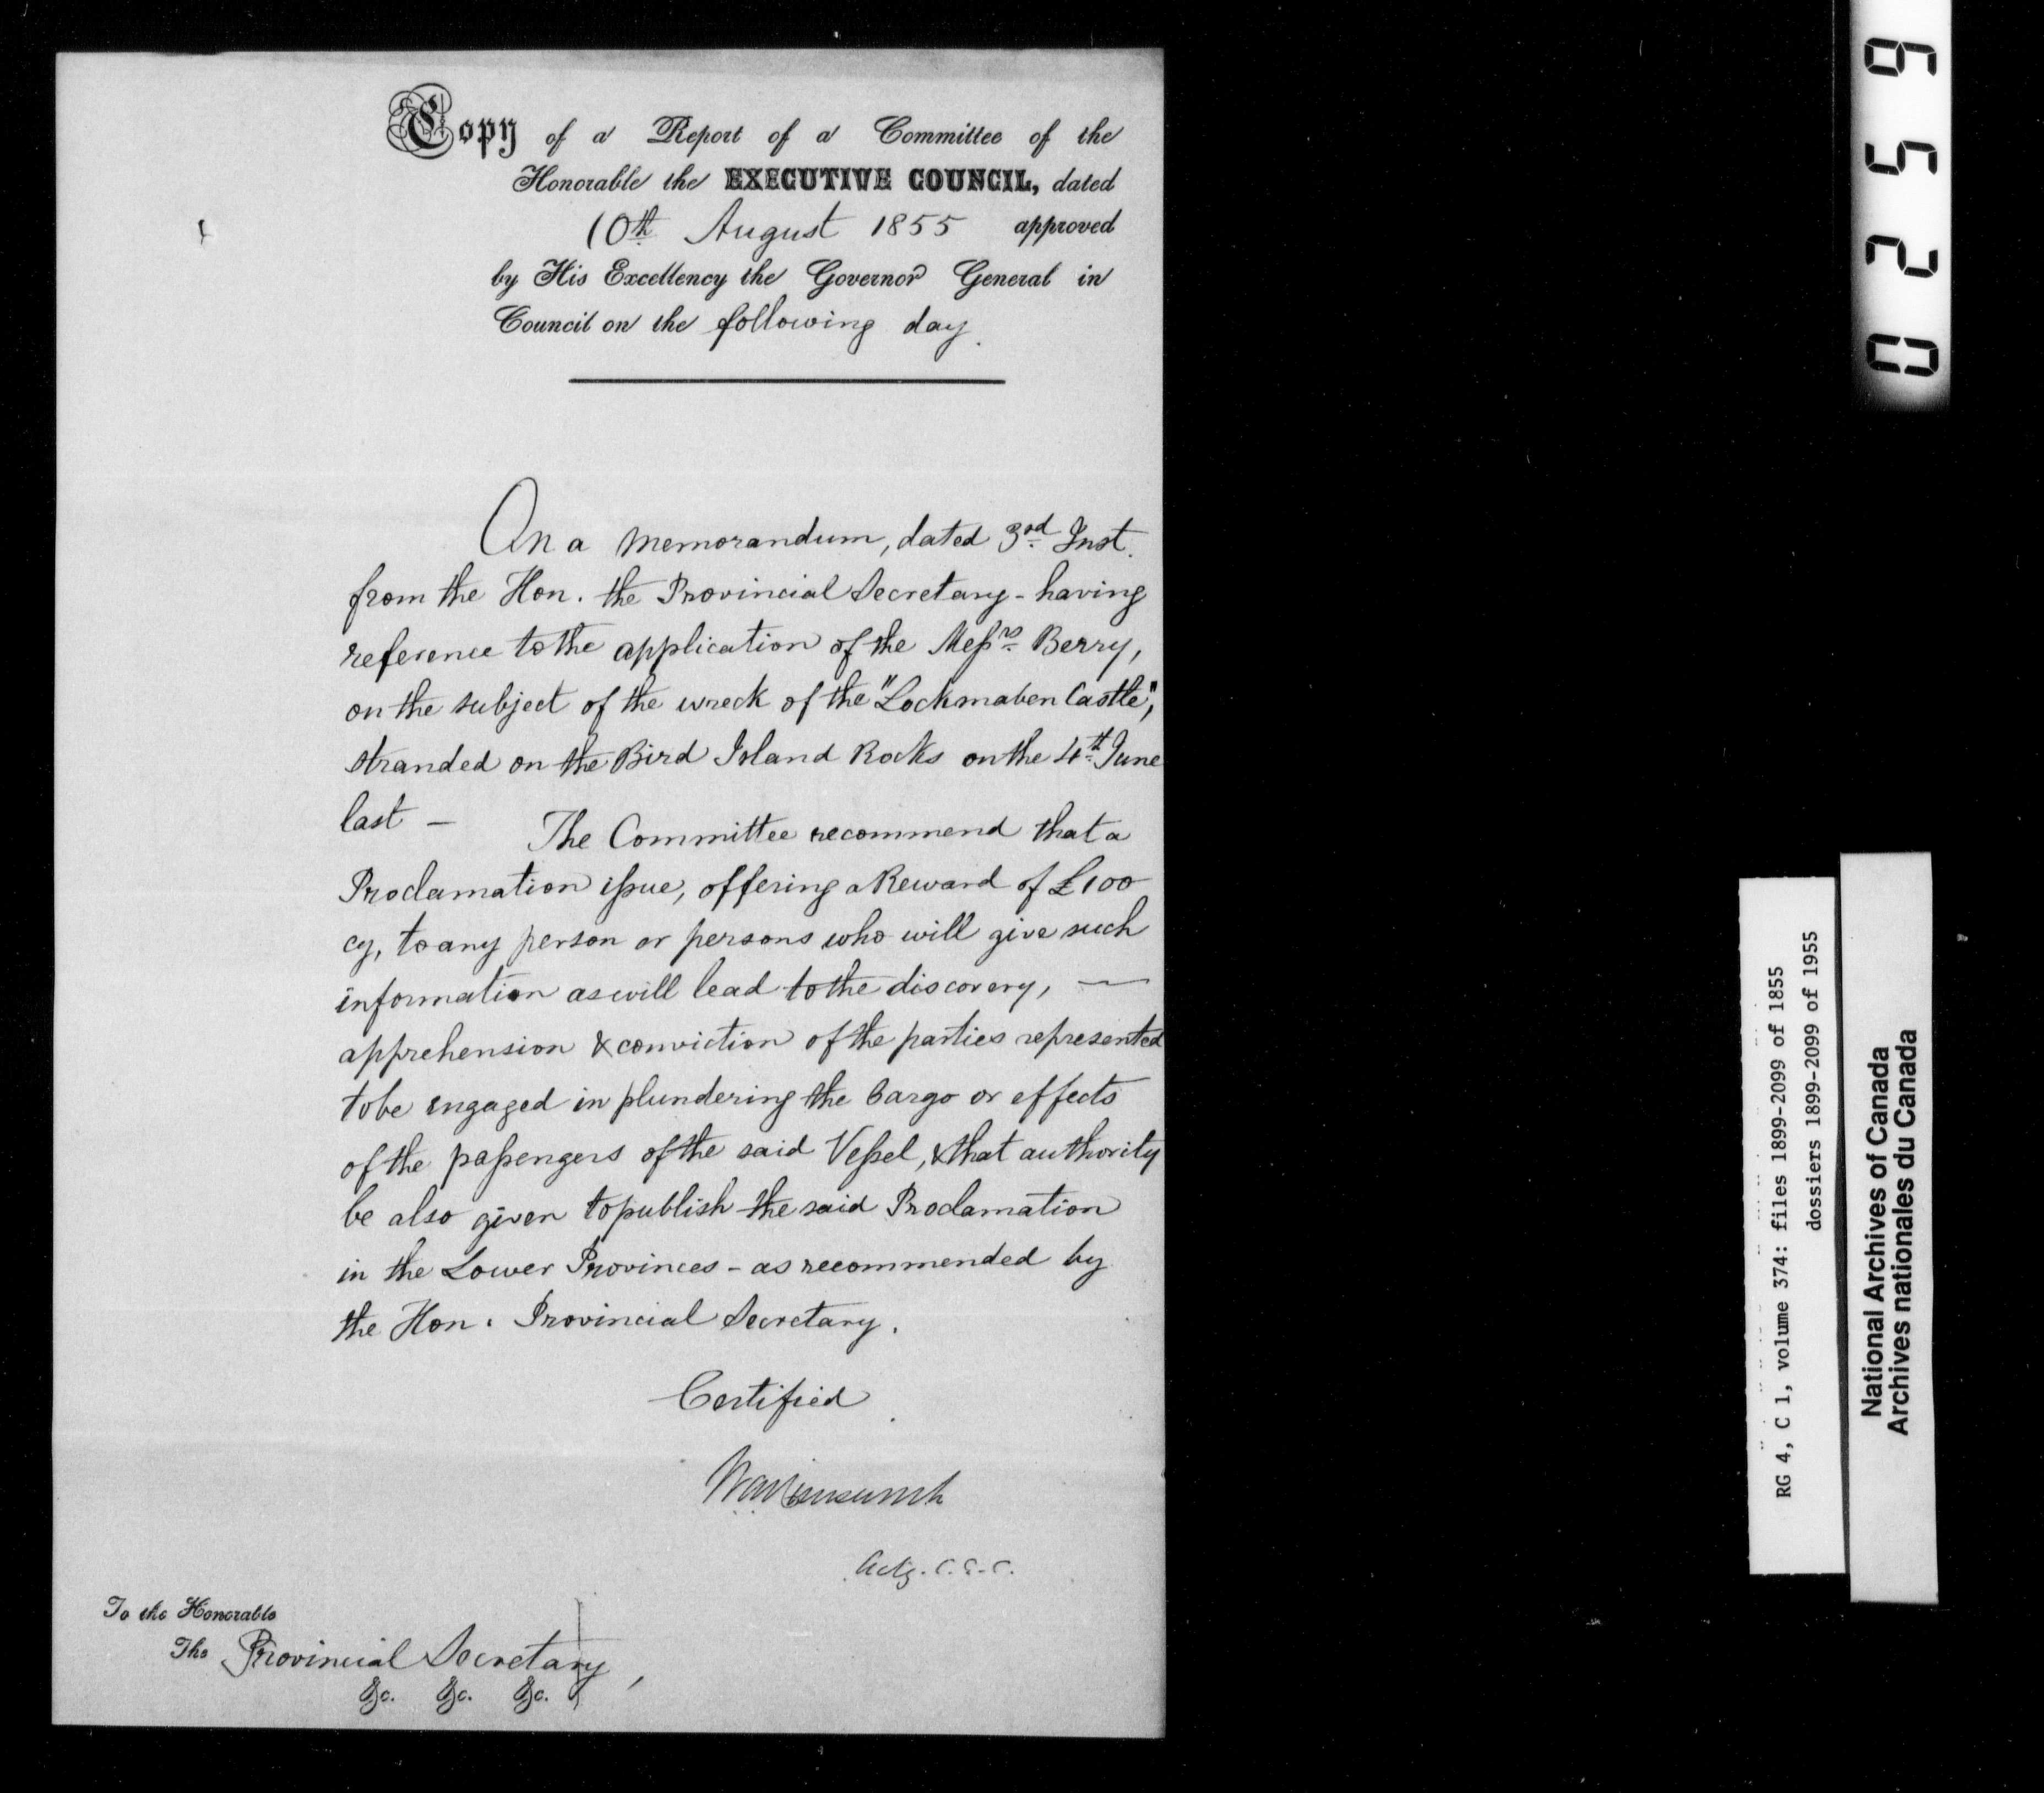 Copy of a Report of a Committee of the
Honorable the EXECUTIVE COUNCIL, dated
10th August 1855 approved
by His Excellency the Governor General in
Council on the following day.
On a Memorandum, dated 3rd Inst.
from the Hon. the Provincial Secretary - having
reference to the application of the Messrs Berry,
on the subject of the wreck of the "Lockmaben Castle",
stranded on the Bird Island Rocks on the 4th June
last — The Committee recommend that a
Proclamation issue, offering a Reward of £100
cy, to any person or persons who will give such
information as will lead to the discovery, —
apprehension & conviction of the parties represented
to be engaged in plundering the Cargo or effects
of the passengers of the said Vessel, & that authority
be also given to publish the said Proclamation
in the Lower Provinces - as recommended by
the Hon. Provincial Secretary.
Certified
Actg. C.E.C.
To the Honorable
The Provincial Secretary,
&c. &c. &c.
0259
RG 4, C 1, volume 374: files 1899-2099 of 1855
dossiers 1899-2099 of 1955
National Archives of Canada
Archives nationales du Canada